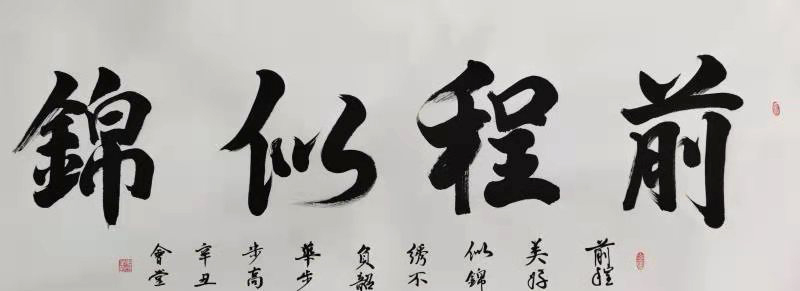 前程似錦
前程
美好
似錦
绣不
負韶
華步
步高
辛丑
會堂